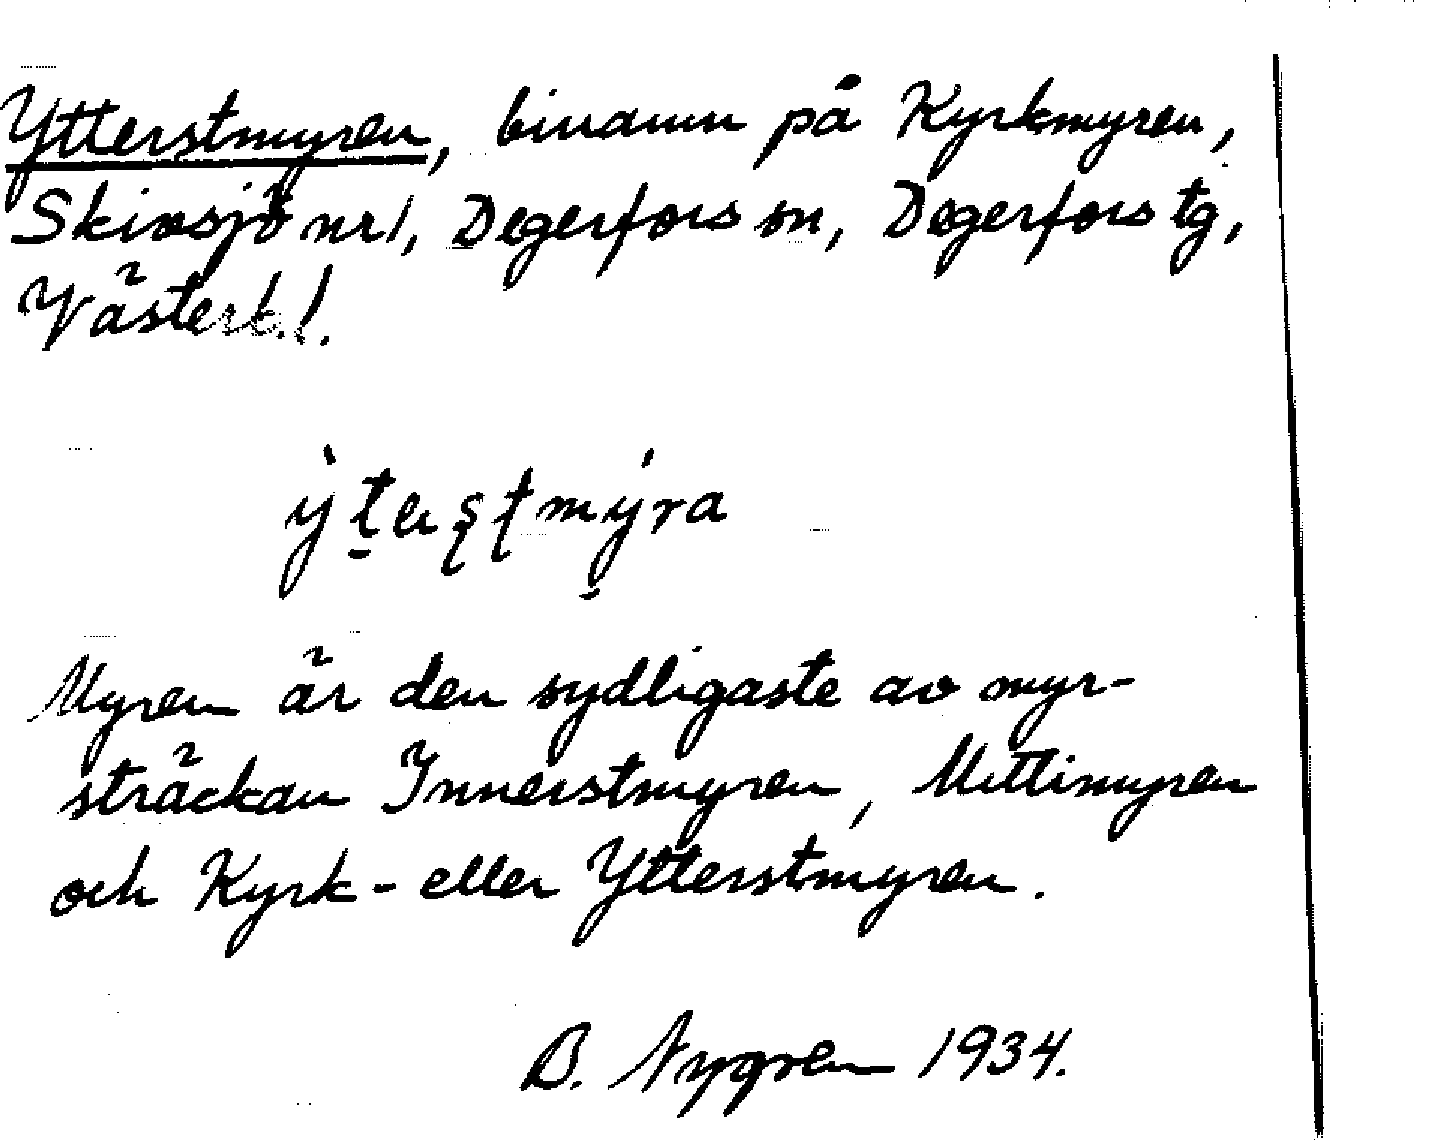 Ytterstmyren, binamn på Kyrkmyren,
Skivsjö nr 1, Degerfors sn, Degerfors tg,
Västerb. l.
Myren är den sydligaste av myr-
sträckan Innerstmyren, Mittimyren
och Kyrk- eller Ytterstmyren.
B. Nygren 1934.